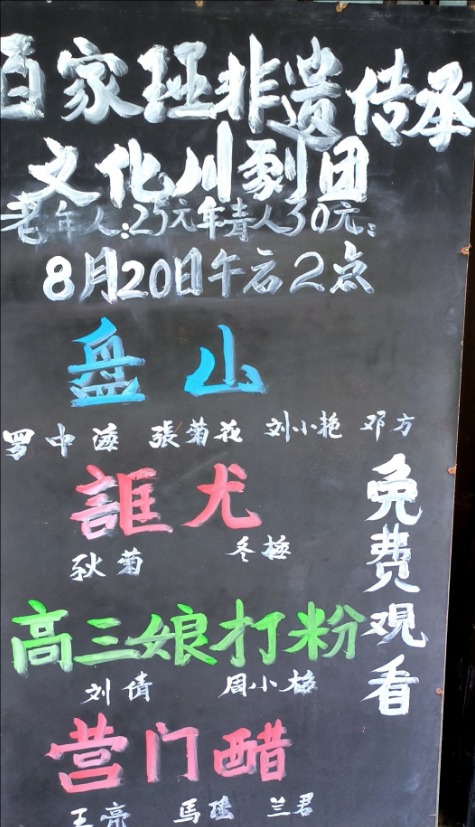 百家班非遗传承
文化川剧团
老年人:25元年青人30元:
8月20日午后2点
盘山
罗中 張菊花 刘小艳 邓方
誆尤
秋菊 冬梅
高三娘打粉
刘倩 周小梅
营门醋
王亮 馬 兰君
免费观看